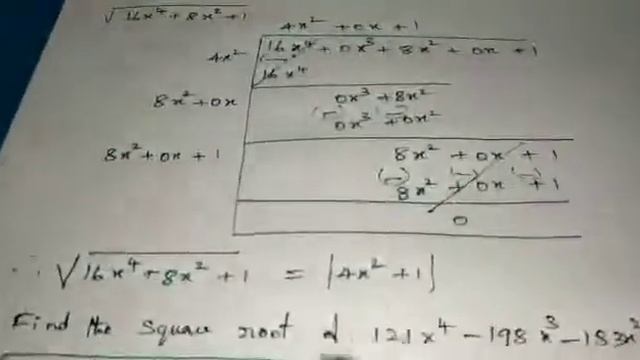 √16x⁴+8x²+1
4x² +0x +1
4x² 16x⁴ + 0x³ + 8x² + 0x + 1
(-) 16x⁴
8x²+0x 0x³ +8x²
(-) (-)
0x³ +0x²
8x²+0x+1 8x² +0x +1
(-) (-) (-)
8x² +0x +1
0
∴ √16x⁴+8x²+1 = |4x²+1|
Find the square root of 121x⁴ - 198x³ - 183x²